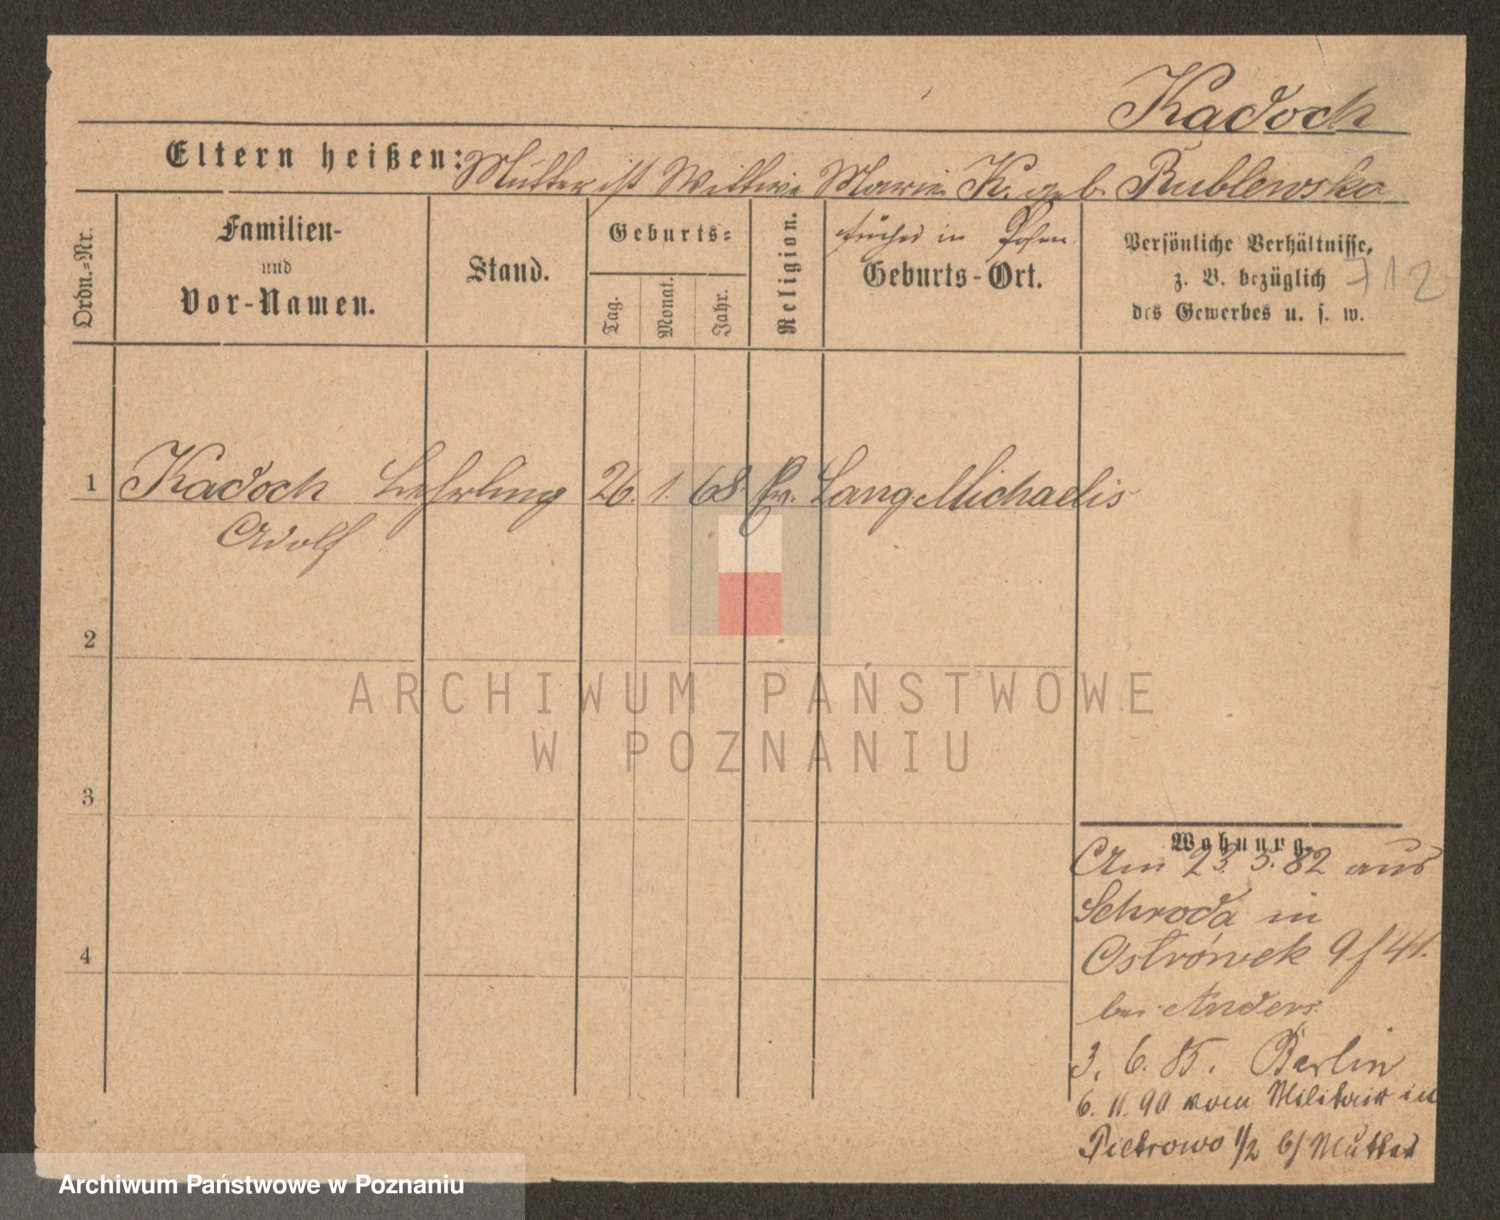 Kadoch
Eltern heißen: Mutter ist Wittwe Marie K. geb. Bublewska
früher in Posen.
Ordn.-Nr.
Familien-
und
Vor-Namen.
Stand.
Geburts-
Tag.
Monat.
Jahr.
Religion.
Geburts-Ort.
Persönliche Verhältnisse,
z. B. bezüglich
des Gewerbes u. s. w.
712
1 Kadoch Lehrling 26. 1. 68. Ev. Lang Michaelis
Adolf
2
3
4
ARCHIWUM PAŃSTWOWE
W POZNANIU
Wohnung.
Am 23. 5. 82 aus
Schroda in
Ostrówek 9/41.
bei Anders.
3. 6. 85. Berlin
6. 11. 90 vom Militair in
Pietrowo 1/2 b/ Mutter
Archiwum Państwowe w Poznaniu